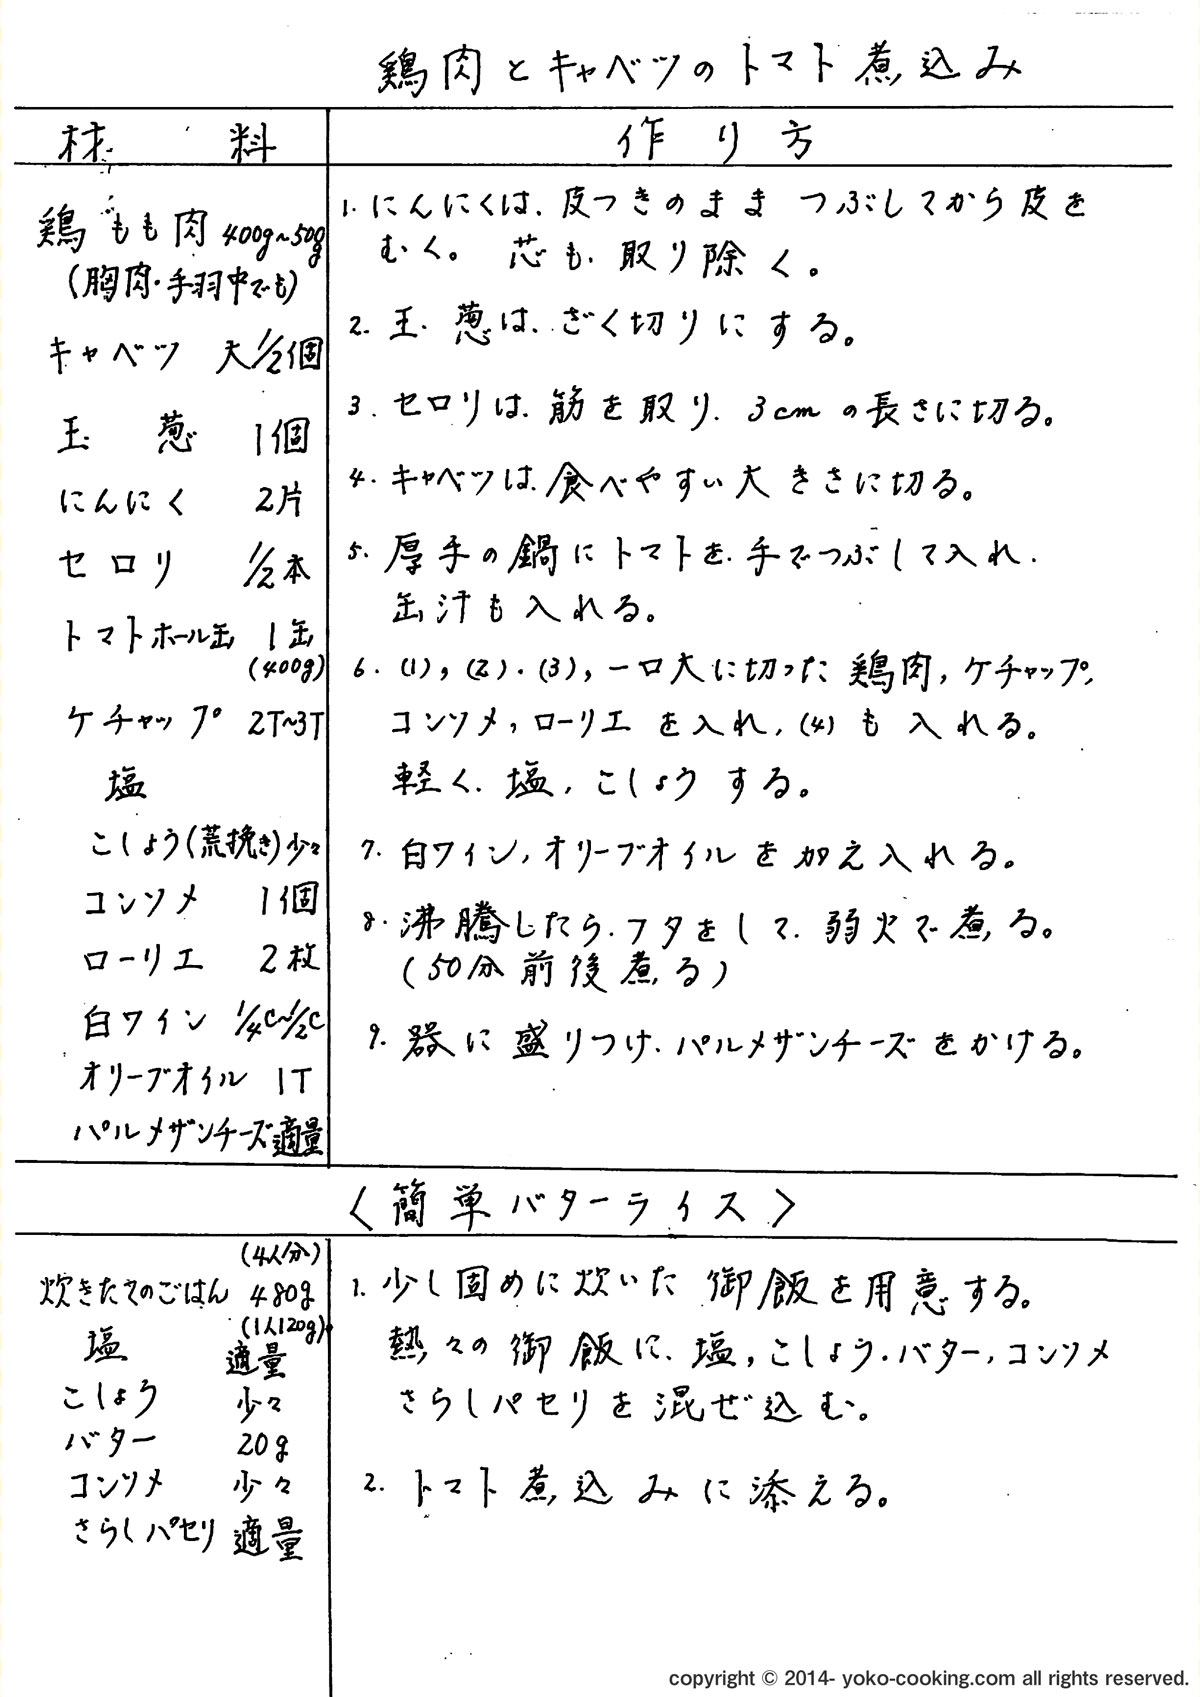 鶏肉とキャベツのトマト煮込み
材料
作り方
鶏もも肉 400g~500g
(胸肉・手羽中でも)
キャベツ 大1/2個
玉葱 1個
にんにく 2片
セロリ 1/2本
トマトホール缶 1缶
(400g)
ケチャップ 2T~3T
塩
こしょう(荒挽き)少々
コンソメ 1個
ローリエ 2枚
白ワイン 1/4C~1/2C
オリーブオイル 1T
パルメザンチーズ適量
1. にんにくは、皮つきのまま つぶしてから皮を
むく。 芯も、取り除く。
2. 玉葱は、ざく切りにする。
3. セロリは、筋を取り、3cmの長さに切る。
4. キャベツは、食べやすい大きさに切る。
5. 厚手の鍋にトマトを、手でつぶして入れ、
缶汁も入れる。
6. (1), (2), (3), 一口大に切った鶏肉, ケチャップ,
コンソメ, ローリエを入れ, (4)も入れる。
軽く、塩, こしょうする。
7. 白ワイン, オリーブオイルを加え入れる。
8. 沸騰したら、フタをして、弱火で煮る。
(50分前後煮る)
9. 器に盛りつけ、パルメザンチーズをかける。
〈簡単バターライス〉
(4人分)
炊きたてのごはん 480g
(1人120g)
塩 適量
こしょう 少々
バター 20g
コンソメ 少々
さらしパセリ 適量
1. 少し固めに炊いた御飯を用意する。
熱々の御飯に、塩, こしょう, バター, コンソメ
さらしパセリを混ぜ込む。
2. トマト煮込みに添える。
copyright © 2014- yoko-cooking.com all rights reserved.